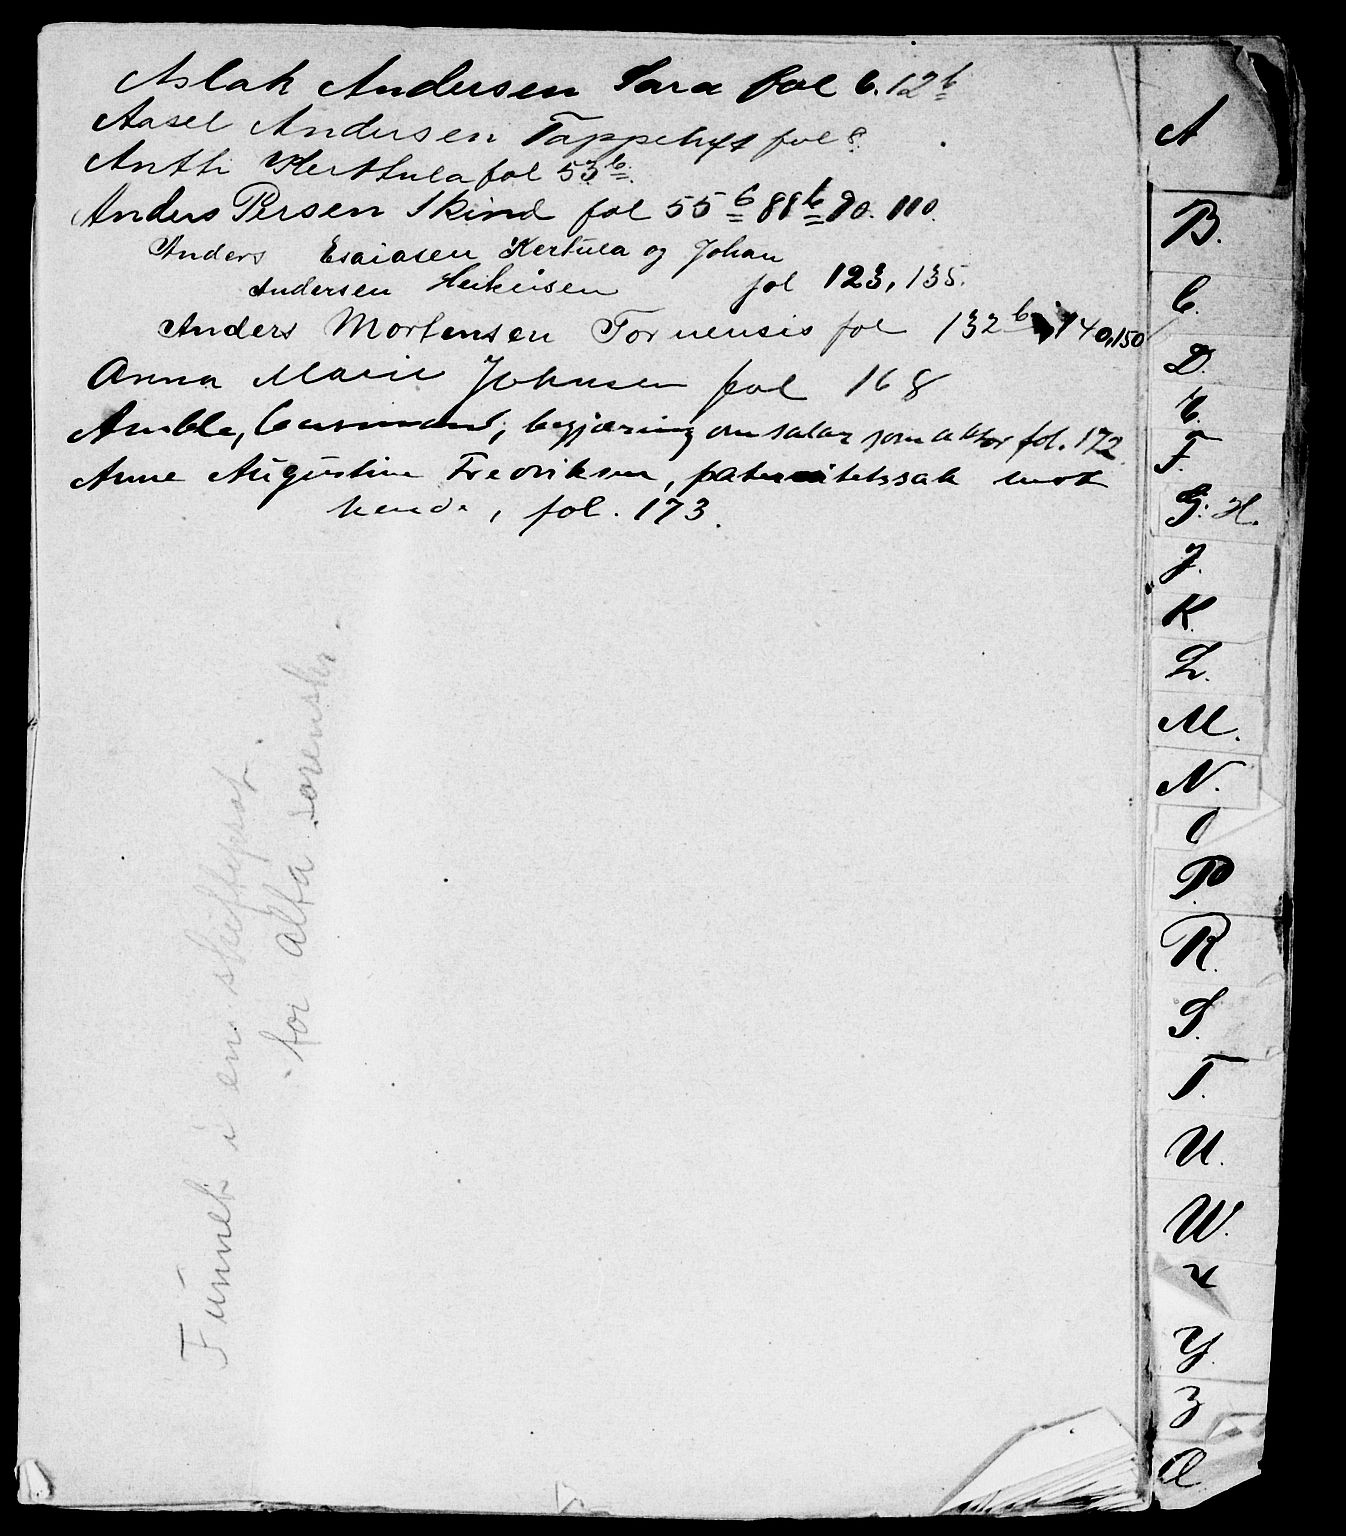 Aslak Andersen Sara fol 6. 12b
Aasel Andersen Tappeluft fol 8.
Antti Kerttula fol 53b.
Anders Persen Skind fol 55b 88b 90. 110.
Anders Esaiasen Kertula og Johan
Andersen Heikeisen fol 123, 135.
Anders Mortensen Tornensis fol 132b 140, 150
Anna Marie Johnsen fol 168
Amble, begjæring om salær som aktor fol. 172
Anne Augustine Fredriksen, paternitetssak mot
hende, fol. 173.
Funnet i en skifteprot.
for Alta sorensk.
A
B.
C.
D.
E.
F.
G. H.
J.
K.
L.
M.
N.
O
P.
R.
S.
T.
U.
W.
X
Y.
Z
Æ